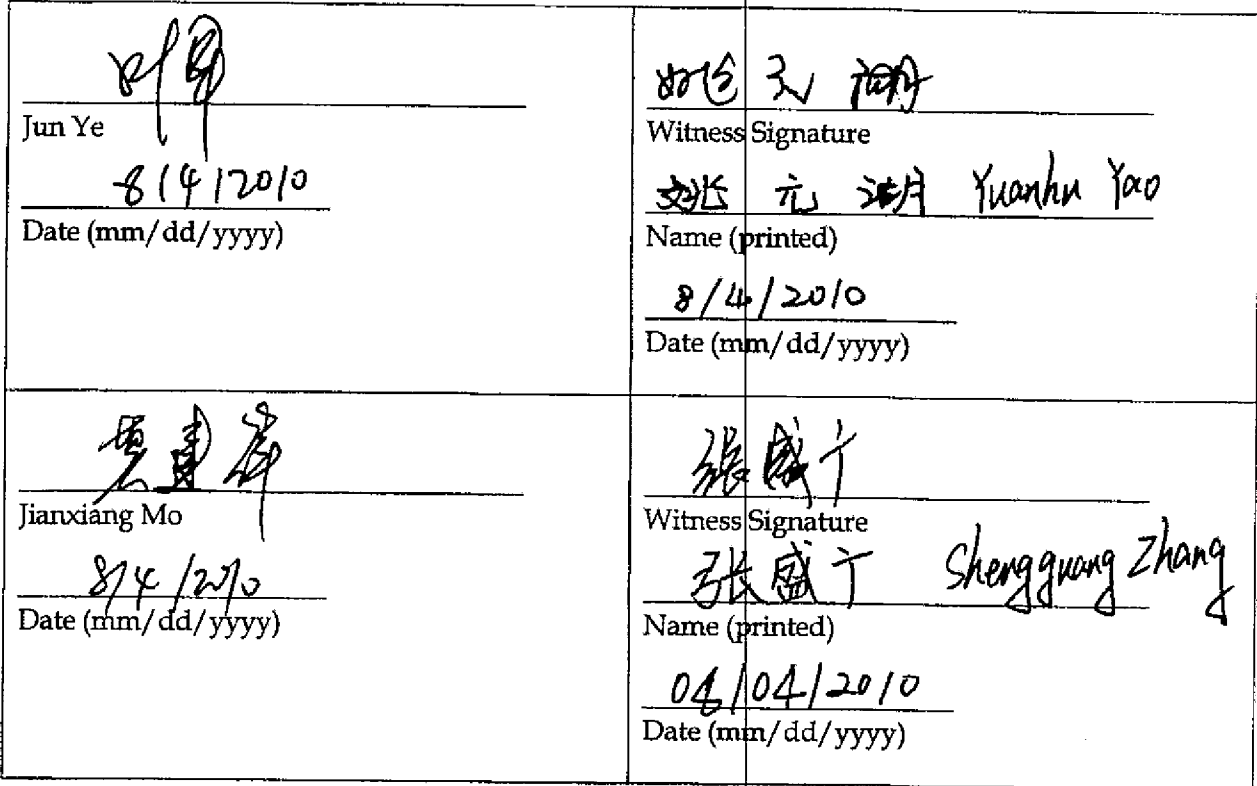 叶军
Jun Ye
8/4/2010
Date (mm/dd/yyyy)
Witness Signature
姚 元 湖 Yuanhu Yao
Name (printed)
8/4/2010
Date (mm/dd/yyyy)
莫建
Jianxiang Mo
8/4/2010
Date (mm/dd/yyyy)
張盛广
Witness Signature
张盛广 Shengguang Zhang
Name (printed)
08/04/2010
Date (mm/dd/yyyy)